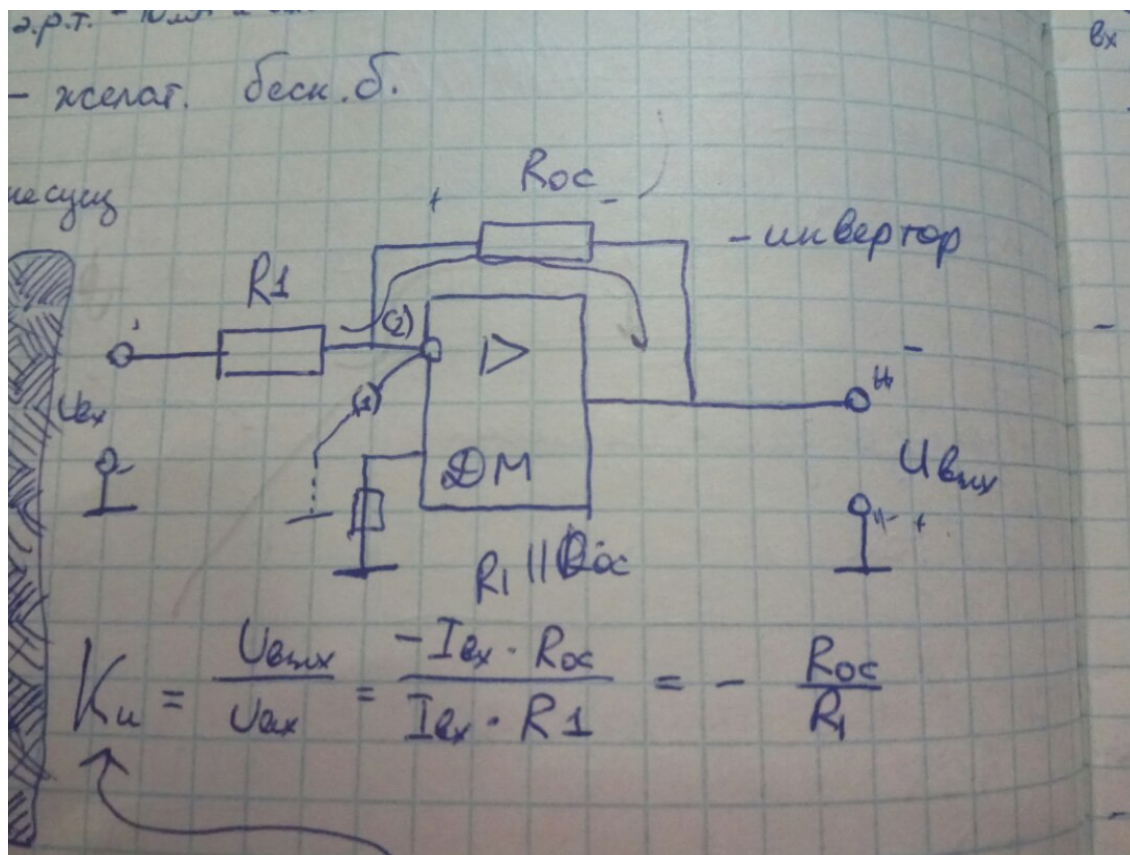 э.р.т. -
вх
- желат. беск. б.
Rос
+ -
- инвертор
R1
(2)
▷
(1)
-
Uвх
-
DM
Uвых
+
R1 || Rос
Kи = Uвых / Uвх = -Iвх · Rос / Iвх · R1 = - Rос / R1